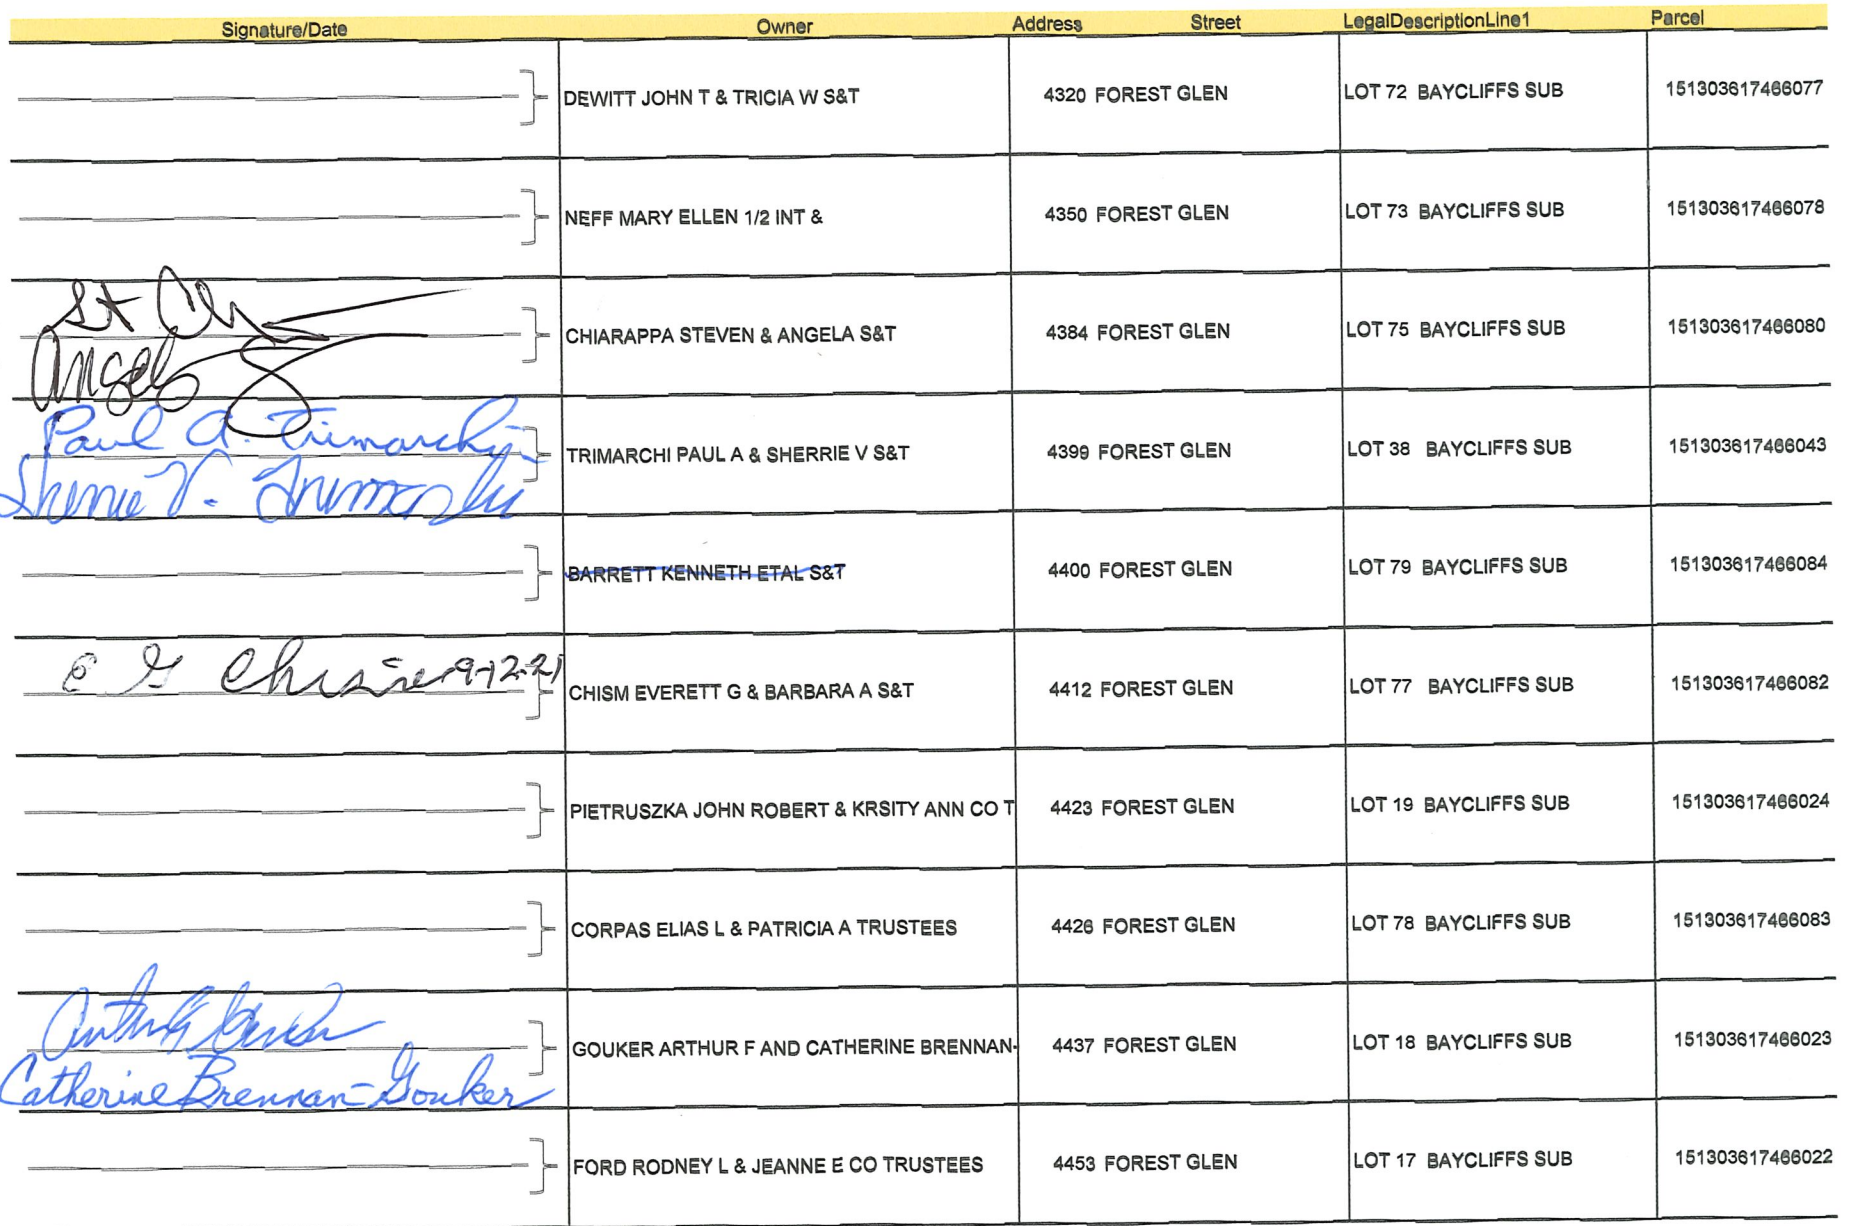 Signature/Date Owner Address Street LegalDescriptionLine1 Parcel
DEWITT JOHN T & TRICIA W S&T 4320 FOREST GLEN LOT 72 BAYCLIFFS SUB 151303617466077
NEFF MARY ELLEN 1/2 INT & 4350 FOREST GLEN LOT 73 BAYCLIFFS SUB 151303617466078
St Ch
CHIARAPPA STEVEN & ANGELA S&T 4384 FOREST GLEN LOT 75 BAYCLIFFS SUB 151303617466080
Angel
Paul A. Trimarchi
TRIMARCHI PAUL A & SHERRIE V S&T 4399 FOREST GLEN LOT 38 BAYCLIFFS SUB 151303617466043
Sherrie V. Trimarchi
BARRETT KENNETH ETAL S&T 4400 FOREST GLEN LOT 79 BAYCLIFFS SUB 151303617466084
E G Chism 9-12-21
CHISM EVERETT G & BARBARA A S&T 4412 FOREST GLEN LOT 77 BAYCLIFFS SUB 151303617466082
PIETRUSZKA JOHN ROBERT & KRSITY ANN CO T 4423 FOREST GLEN LOT 19 BAYCLIFFS SUB 151303617466024
CORPAS ELIAS L & PATRICIA A TRUSTEES 4426 FOREST GLEN LOT 78 BAYCLIFFS SUB 151303617466083
GOUKER ARTHUR F AND CATHERINE BRENNAN- 4437 FOREST GLEN LOT 18 BAYCLIFFS SUB 151303617466023
Catherine Brennan-Gouker
FORD RODNEY L & JEANNE E CO TRUSTEES 4453 FOREST GLEN LOT 17 BAYCLIFFS SUB 151303617466022